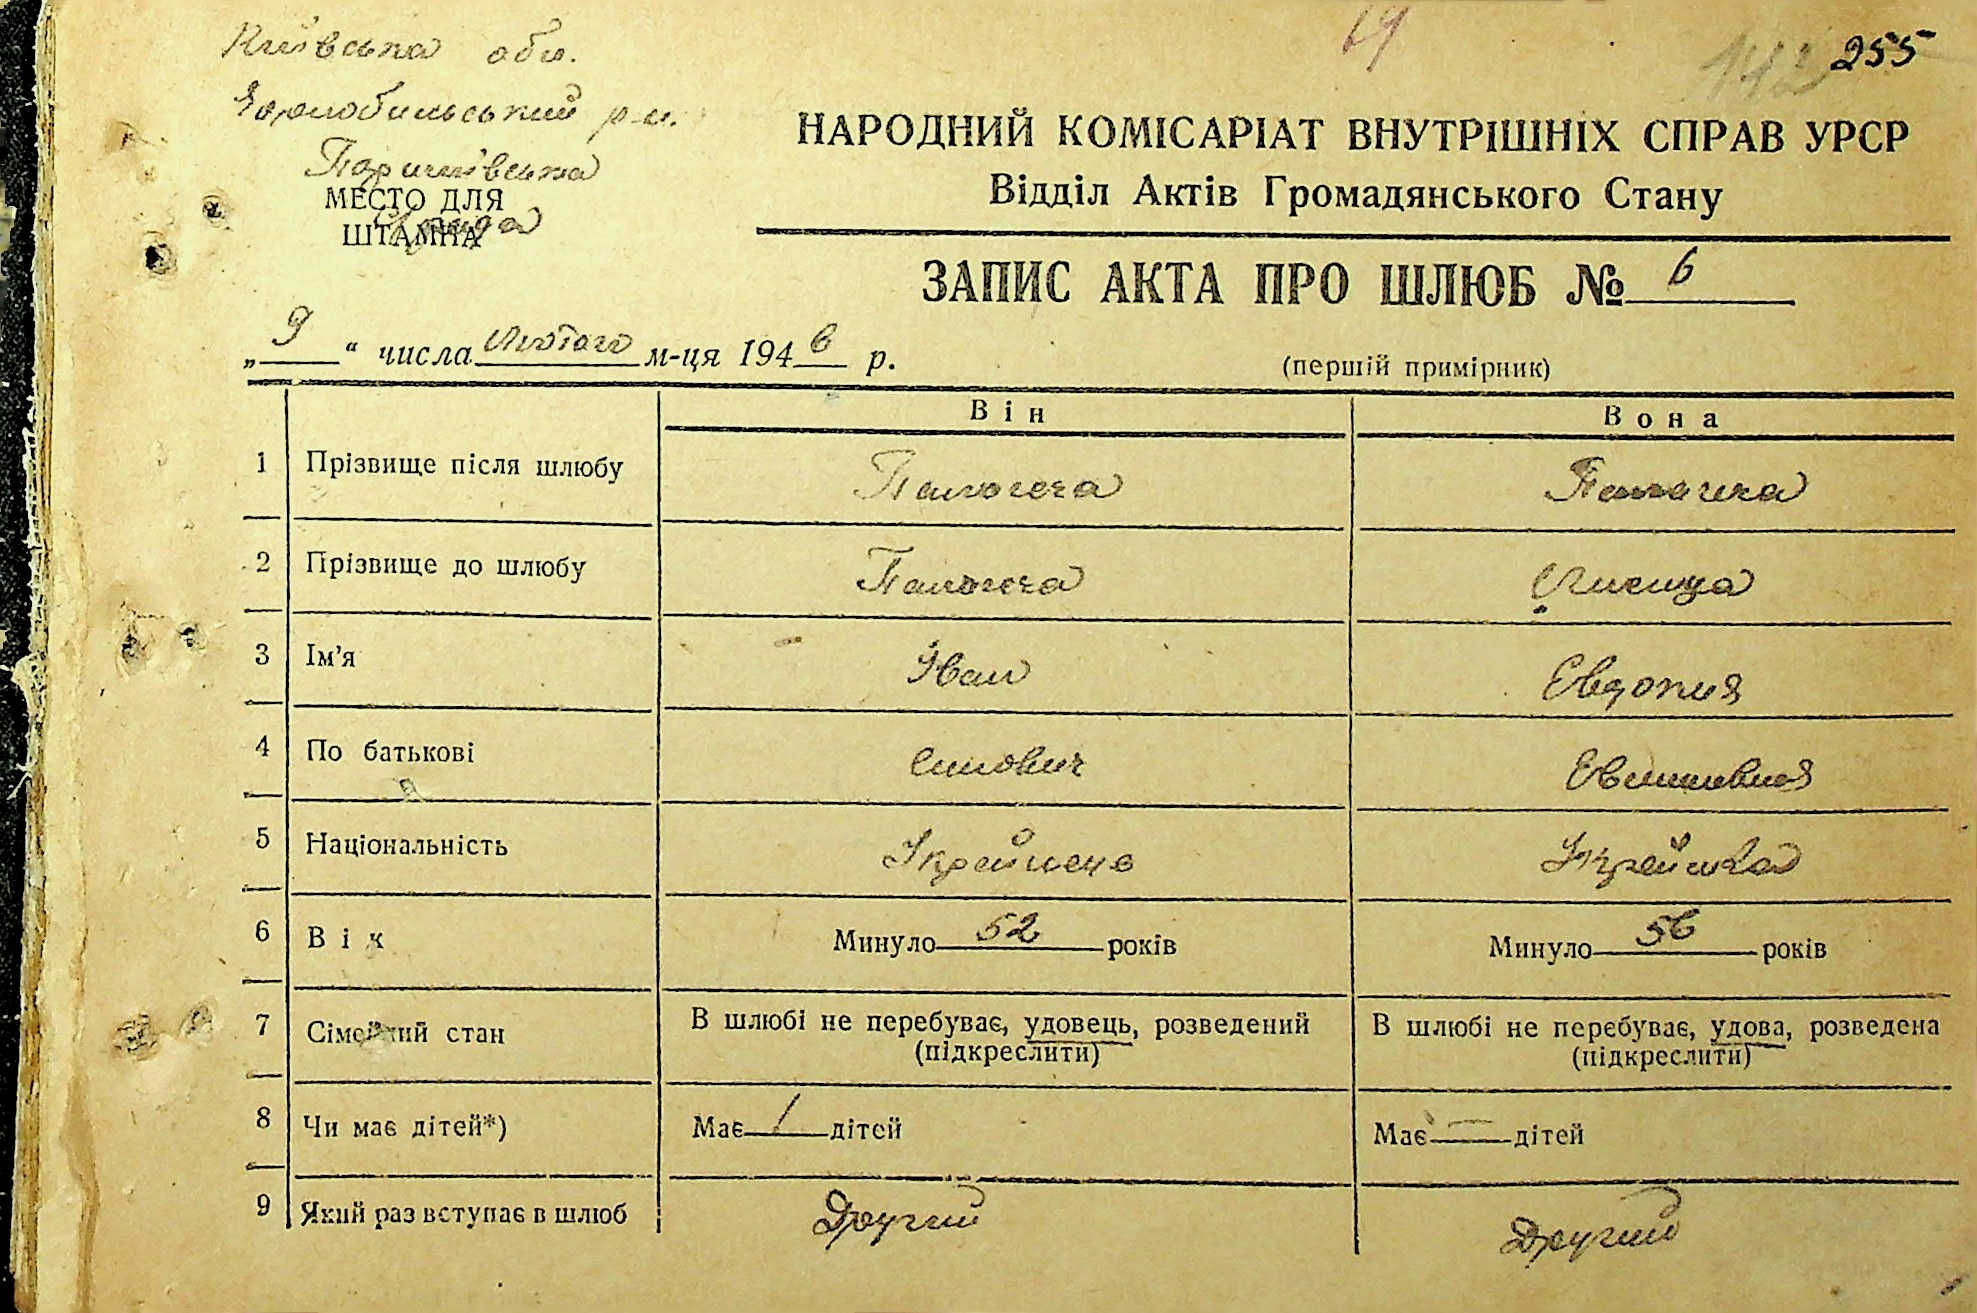 Київська обл.
Чорнобильський р-н.
Паришівська
МЕСТО ДЛЯ
ШТАМПА
Сільрада
19
142 255
НАРОДНИЙ КОМІСАРІАТ ВНУТРІШНІХ СПРАВ УРСР
Відділ Актів Громадянського Стану
ЗАПИС АКТА ПРО ШЛЮБ № 6
„9“ числа Лютого м-ця 1946 р.
(першій примірник)
Він Вона
1 Прізвище після шлюбу
2 Прізвище до шлюбу Лисица
3 Ім'я Іван Евдокия
4 По батькові
5 Національність Украйнець Украйнка
6 Вік Минуло 52 років Минуло 56 років
7 Сімейний стан В шлюбі не перебуває, удовець, розведений В шлюбі не перебуває, удова, розведена
(підкреслити) (підкреслити)
8 Чи має дітей*) Має 1 дітей Має — дітей
9 Який раз вступає в шлюб Другий Другий